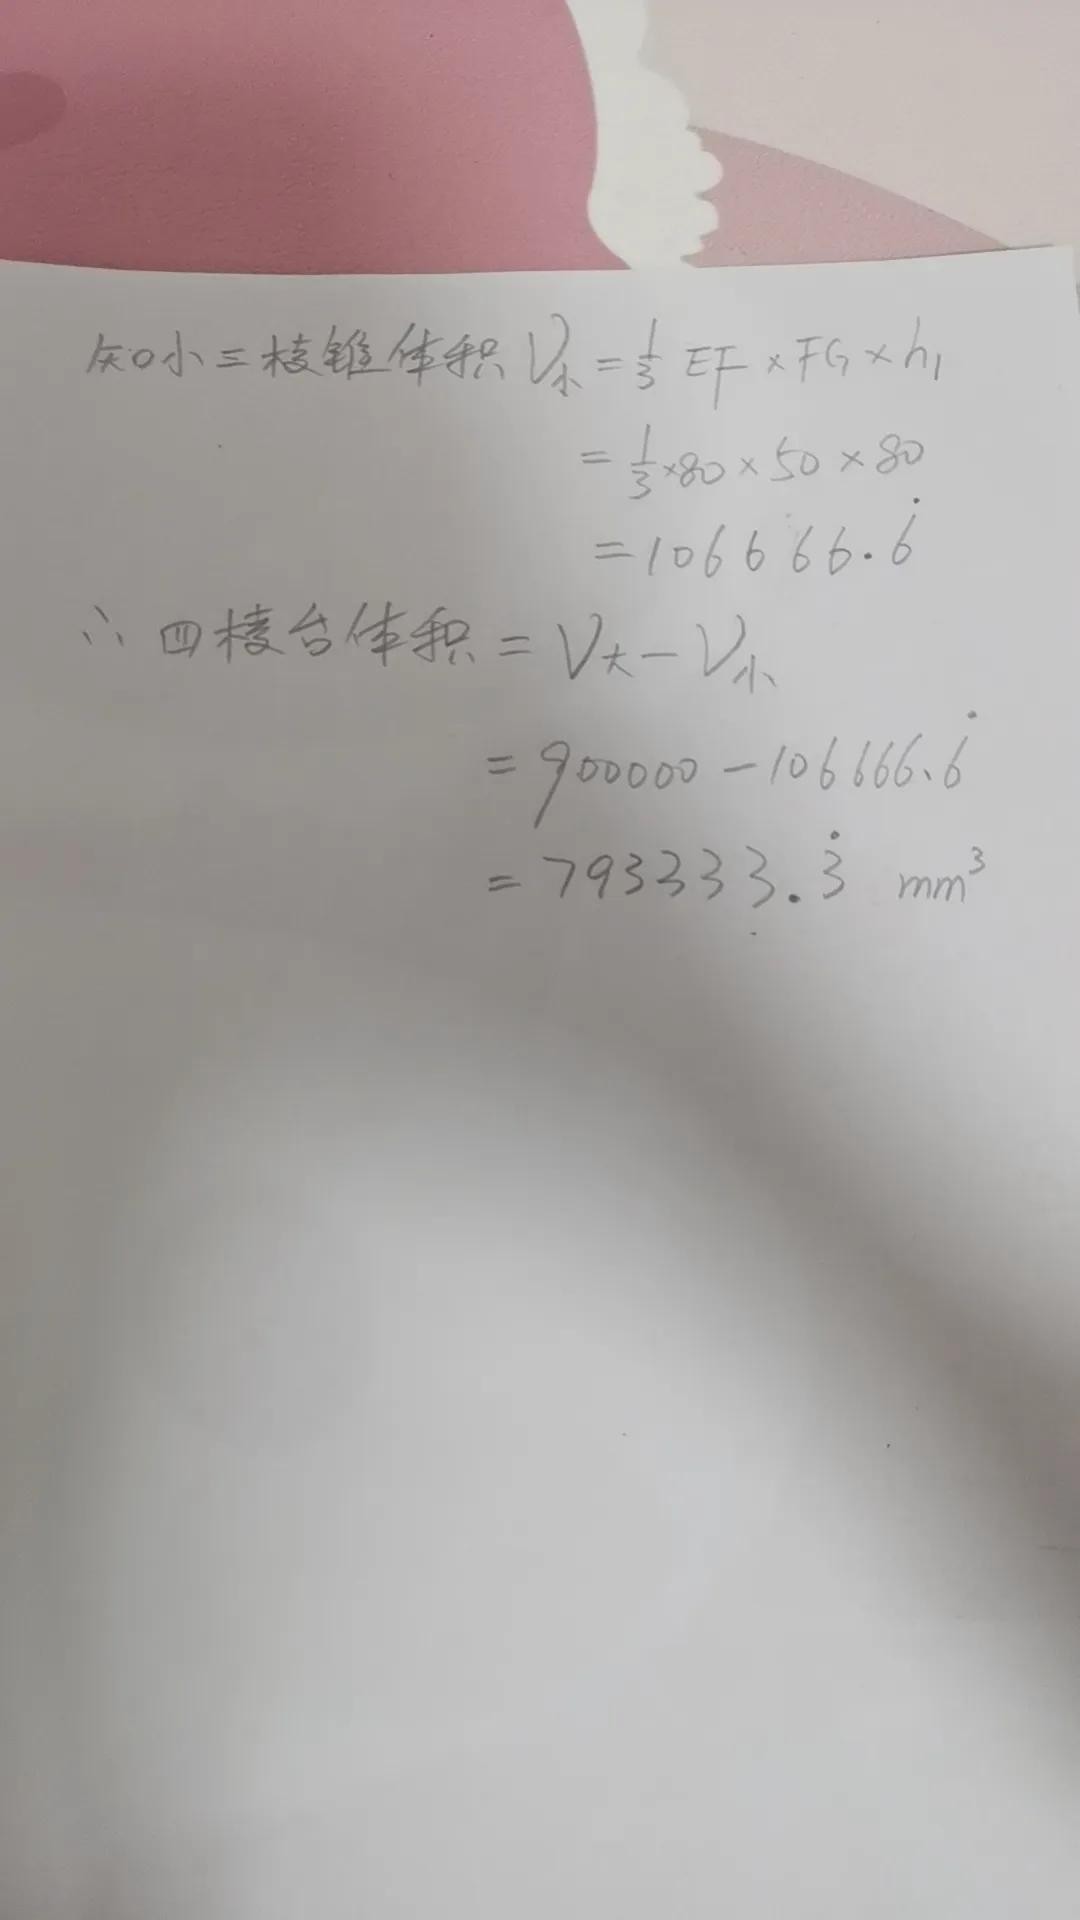 知小三棱锥体积 V小 = 1/3 EF × FG × h₁
= 1/3 × 80 × 50 × 80
= 106666.6̇
∴ 四棱台体积 = V大 - V小
= 900000 - 106666.6̇
= 793333.3̇ mm³